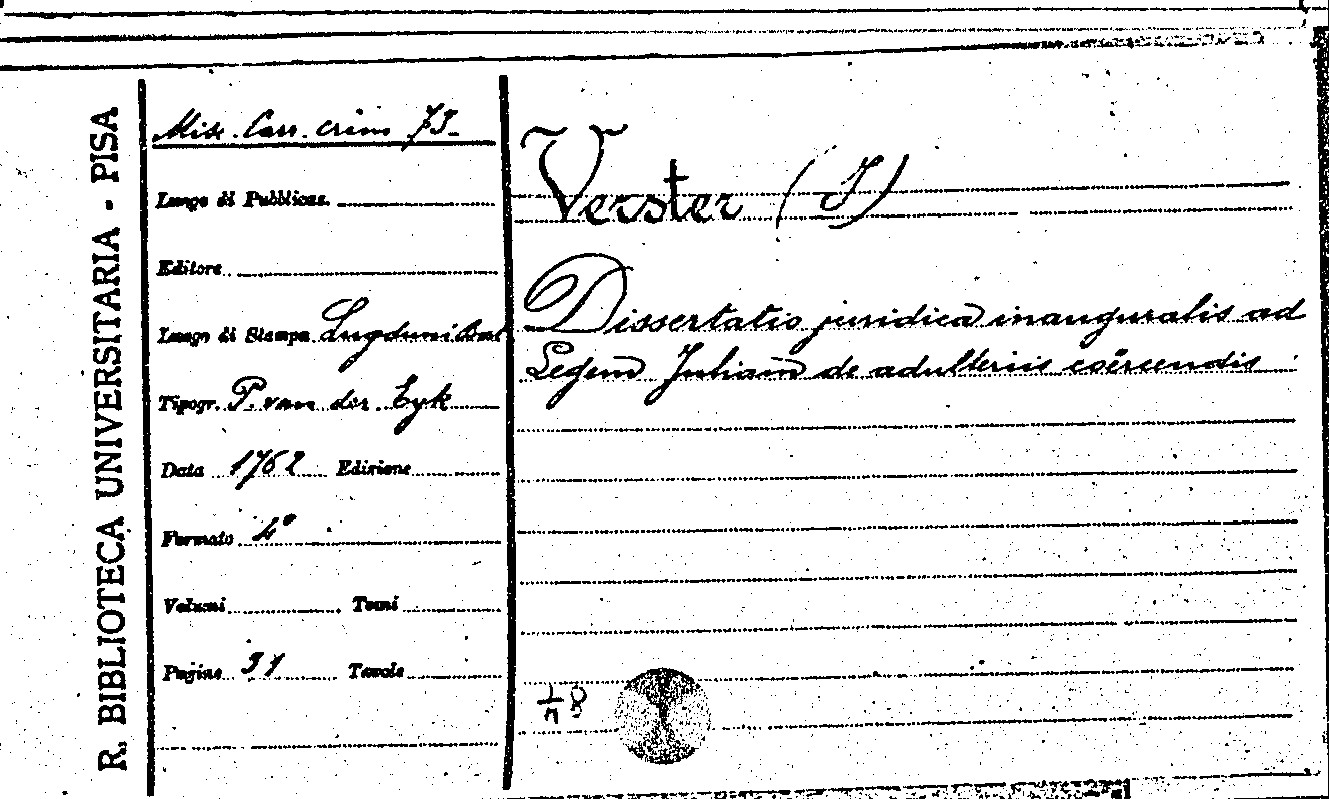 R. BIBLIOTECA UNIVERSITARIA - PISA
Misc. Carr. crim 73.
Luogo di Pubblicaz.
Editore
Luogo di Stampa Lugduni Bat
Tipogr. P. van der Eyk
Data 1762 Edizione
Formato 4º
Volumi Tomi
Pagine 31 Tavole
Verster (J)
Dissertatio juridica inauguralis ad
Legem Juliam de adulteriis coërcendis